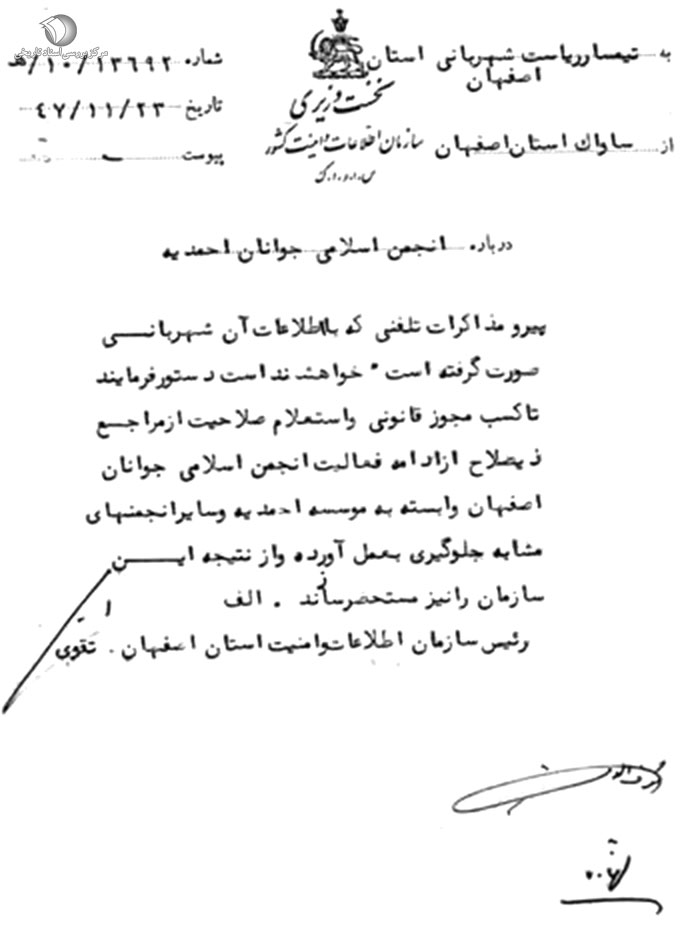 مرکز بررسی اسناد تاریخی
به تیمسار ریاست شهربانی استان
اصفهان
شماره ۱۰/۱۳۶۹۲/هـ
نخست وزیری
تاریخ ۴۷/۱۱/۲۳
از ساواک استان اصفهان
سازمان اطلاعات و امنیت کشور
پیوست
س.ا.و.ا.ک
درباره انجمن اسلامی جوانان احمدیه
پیرو مذاکرات تلفنی که با اطلاعات آن شهربانی
صورت گرفته است • خواهشمند است دستور فرمایند
تا کسب مجوز قانونی و استعلام صلاحیت از مراجع
ذیصلاح از ادامه فعالیت انجمن اسلامی جوانان
اصفهان وابسته به موسسه احمدیه و سایر انجمنهای
مشابه جلوگیری بعمل آورده و از نتیجه این
سازمان را نیز مستحضر سازند . الف
رئیس سازمان اطلاعات و امنیت استان اصفهان . تقوی